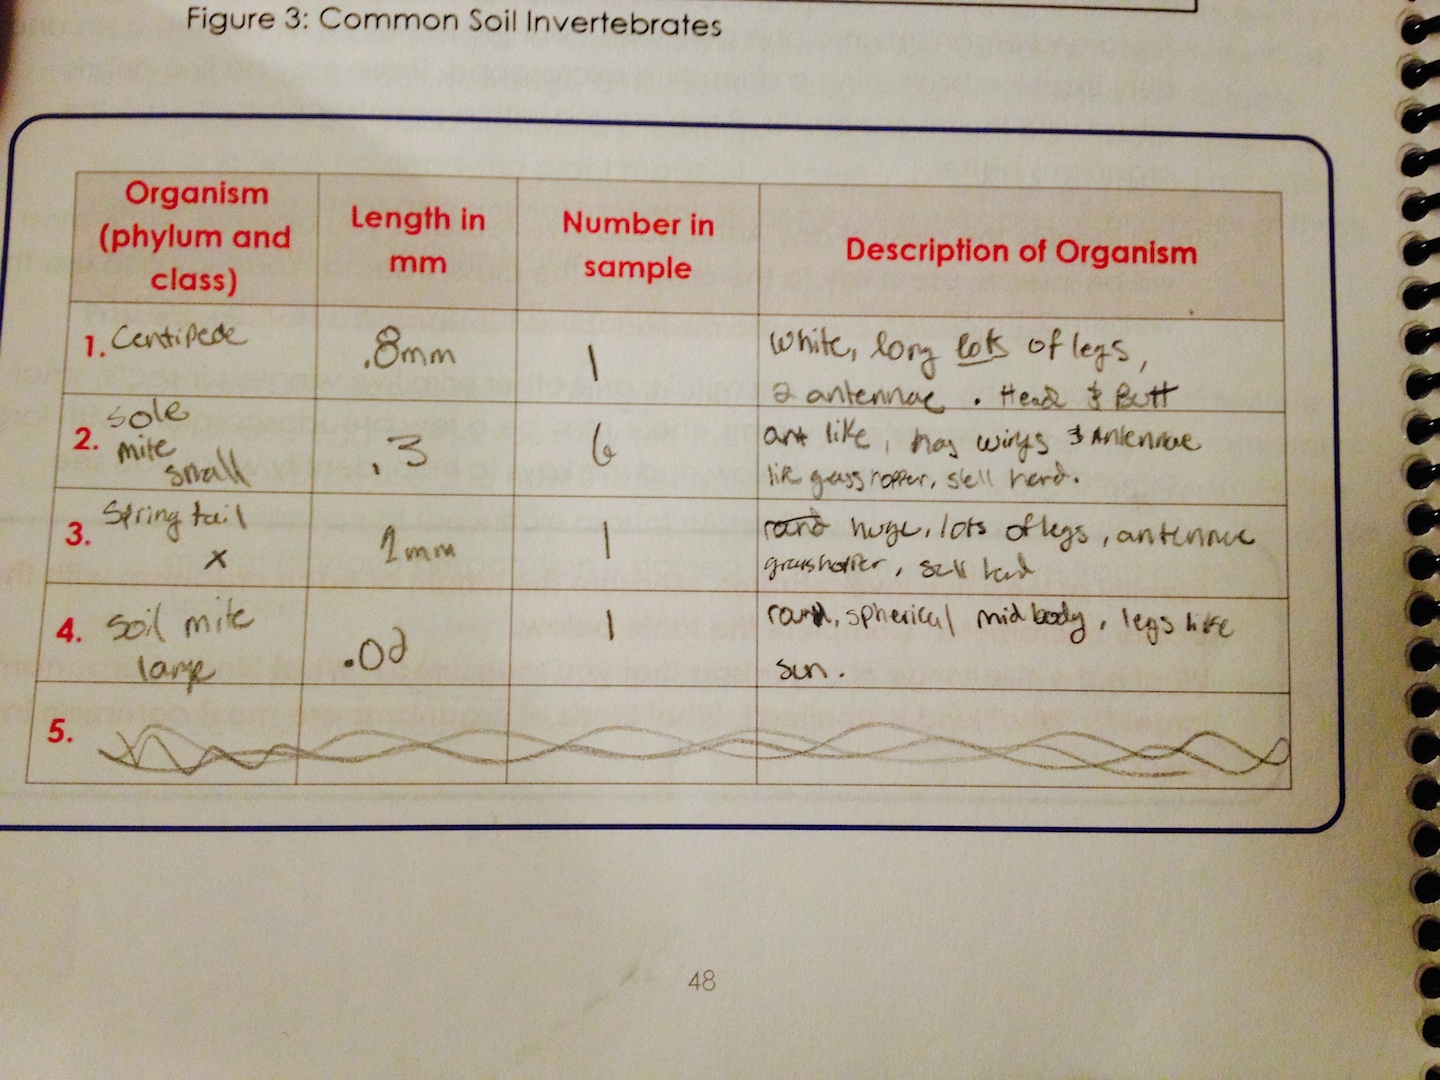 Figure 3: Common Soil Invertebrates
Organism
(phylum and
class)
Length in
mm
Number in
sample
Description of Organism
1. Centipede
.8mm
1
White, long lots of legs,
2 antennae . Head & Butt
2. sole
mite
small
.3
6
ant like, has wings & Antennae
like grasshopper, shell hard.
3. Springtail
x
1mm
1
round huge, lots of legs, antennae
grasshopper, shell hard
4. soil mite
large
.02
1
round, spherical midbody, legs like
sun.
5.
48